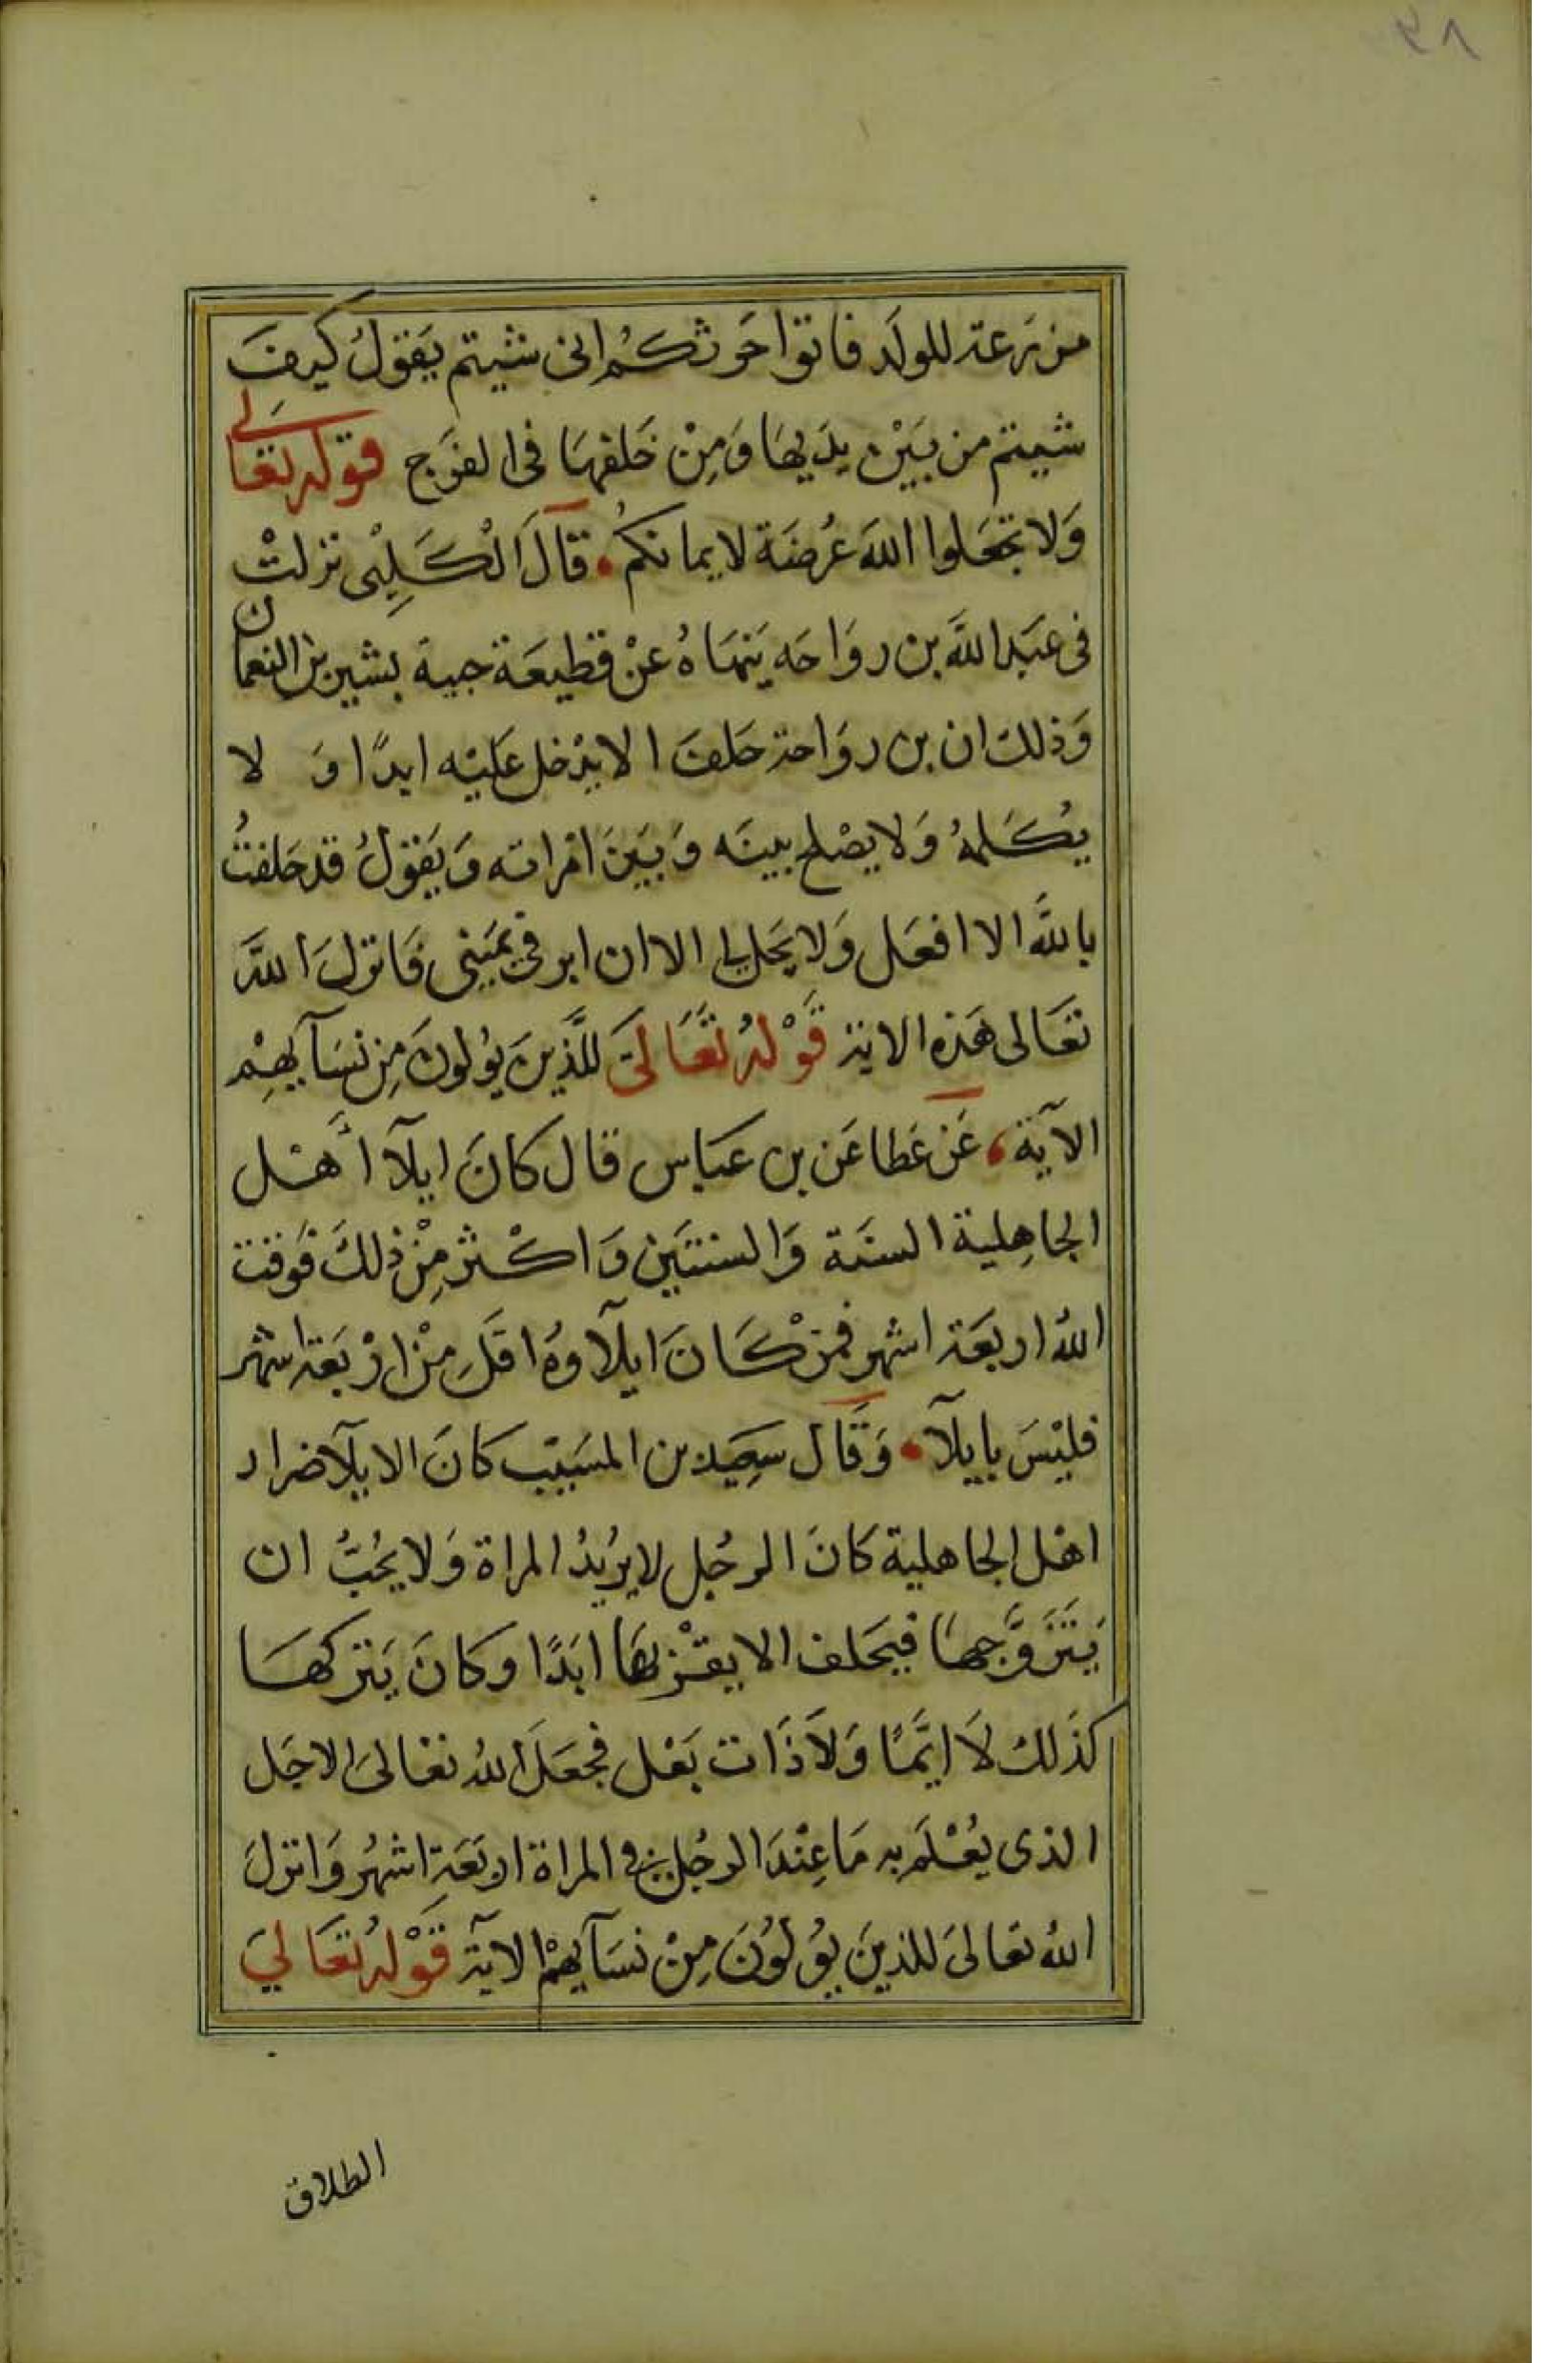 من رعة للولد فاتوا حَرثكُم انى شيتم يَقولُ كيفَ
شيتم من بَيْن يدَيهَا وَمِنْ خَلفهَا فى الفرَج قوله تعالى
وَلا تجعَلوا اللهَ عُرضَة لايمانكمُ قالَ الْكَلِبْى نزلتْ
فى عبَد اللهَ بن روَاحَه يَنهَاهُ عنْ قطيعَة جيبة بشير بن النعمان
وَذلك ان بن روَاحة حَلفَ الا يَدخل عَليْه ابدًا وَ لا
يُكَلمهُ وَلا يصْلح بينَه وَبَينَ امْراته وَيَقولُ قد حَلفتُ
بالله الا افعَل وَلا يحَل لى الا ان ابر فى يمَينى فَانزلَ اللهَ
تعَالى هَذه الاية قَوْلهُ تَعَالىَ للَّذينَ يوُلونَ مِن نسَآيهِمْ
الآية عَن عَطا عَن بن عَباس قال كانَ ايلآ أهْل
الجاهِلية السنَة وَالسنتَين وَاكْثر مِنْ ذلكَ فوَقت
اللهُ اربعَة اشهر فمَنْ كَانَ ايلآوهُ اقَل مِنْ ارْبَعَة اشهر
فليْسَ بايلآ وَقَال سَعِيد بن المسَيّب كانَ الايلآ ضرار
اهْل الجاهلية كانَ الرجُل لا يرُيدُ المراة وَلا يحُبُّ ان
يَتَزَوَّجهَا فيحَلف الا يقْربهَا ابَدًا وكانَ يَتركهَا
كذَلك لَا ايَّمًا وَلَا ذَات بَعْل فجعَلَ اللهُ تعَالىَ الاجَل
الذى يعُلَم به مَا عِنْدَ الرجُل فى المراة اربَعَة اشهُر وَانزلَ
اللهُ تعالىَ للذينَ يوُلوُنَ مِنْ نسَآيهمْ الآية قَوْلهُ تعَالىَ
الطلاق